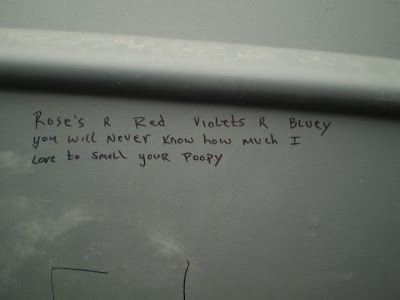 Rose's R Red Violets R Bluey
you will Never know how much I
Love to smell your Poopy